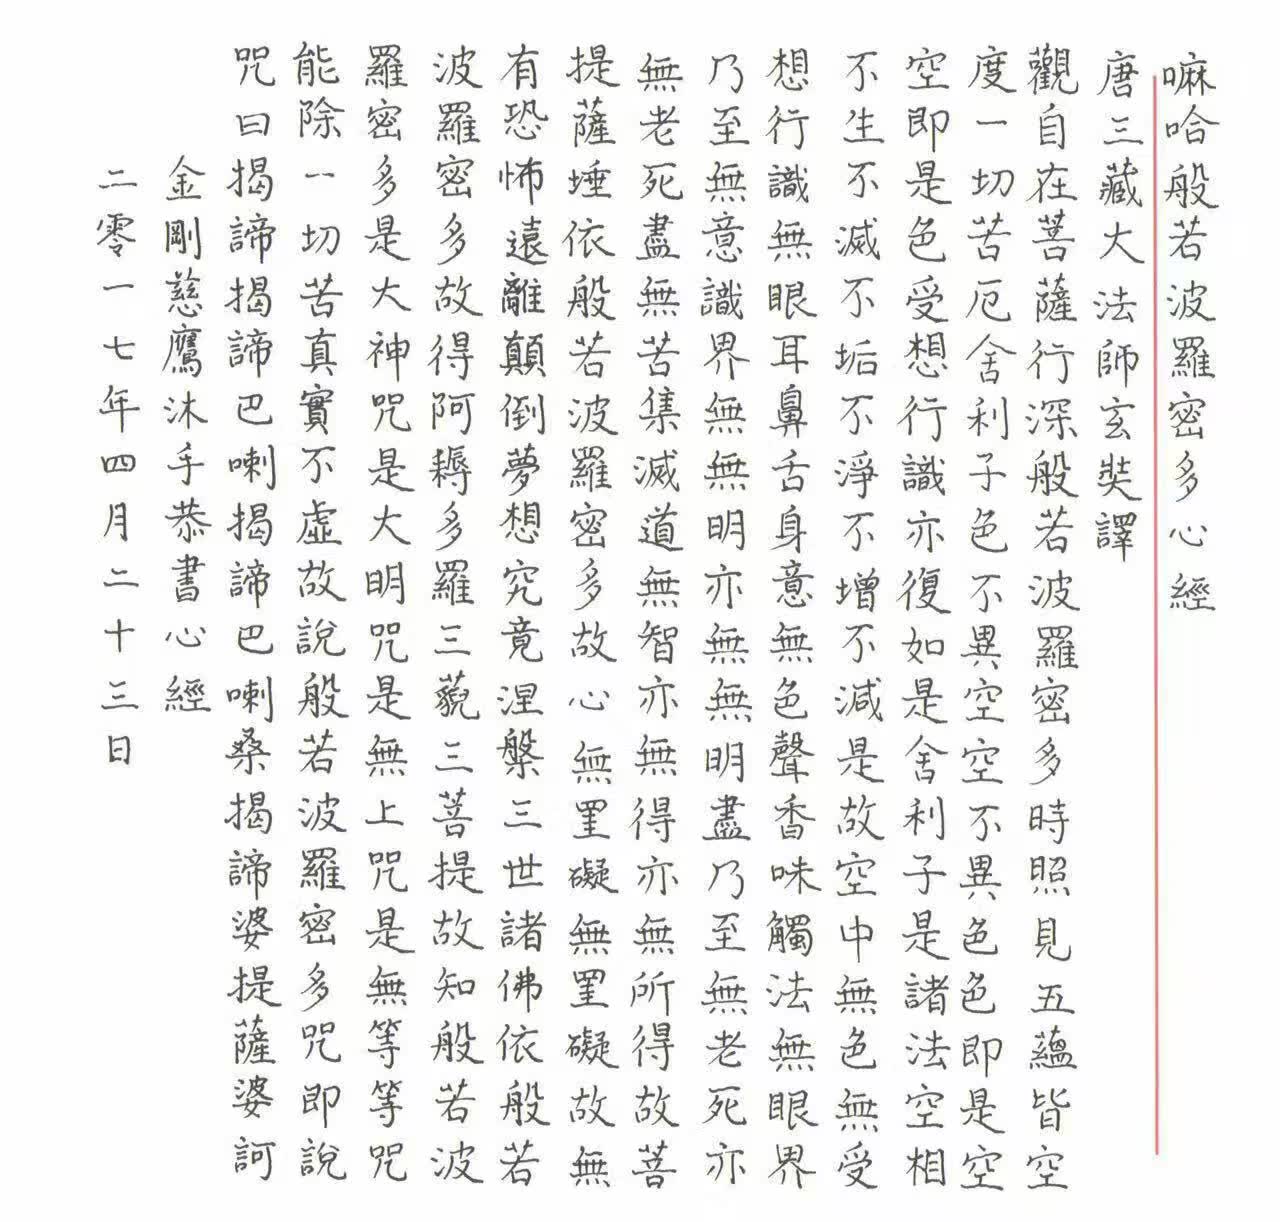 嘛哈般若波羅密多心經
唐三藏大法師玄奘譯
觀自在菩薩行深般若波羅密多時照見五蘊皆空
度一切苦厄舍利子色不異空空不異色色即是空
空即是色受想行識亦復如是舍利子是諸法空相
不生不滅不垢不淨不增不減是故空中無色無受
想行識無眼耳鼻舌身意無色聲香味觸法無眼界
乃至無意識界無無明亦無無明盡乃至無老死亦
無老死盡無苦集滅道無智亦無得亦無所得故菩
提薩埵依般若波羅密多故心無罣礙無罣礙故無
有恐怖遠離顛倒夢想究竟涅槃三世諸佛依般若
波羅密多故得阿耨多羅三藐三菩提故知般若波
羅密多是大神咒是大明咒是無上咒是無等等咒
能除一切苦真實不虛故說般若波羅密多咒即說
咒曰揭諦揭諦巴喇揭諦巴喇桑揭諦婆提薩婆訶
金剛慈鷹沐手恭書心經
二零一七年四月二十三日